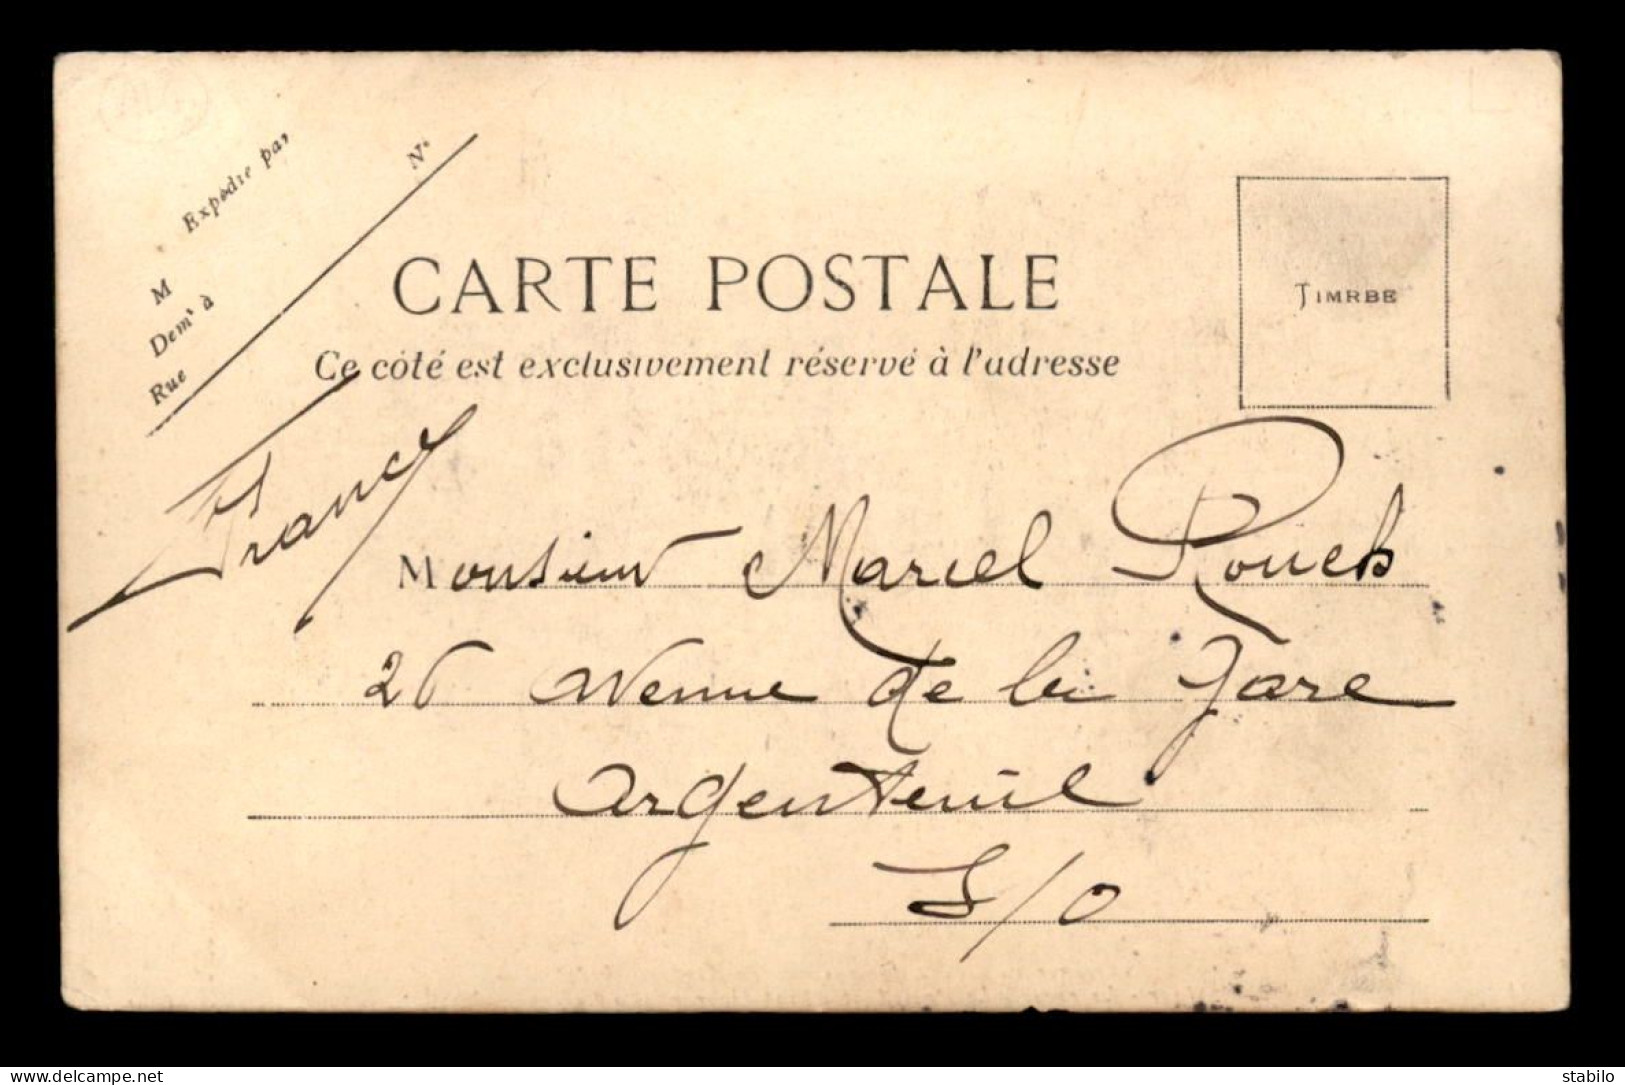 Expédié par
M
Dem<sup>t</sup> à
Rue
N°
CARTE POSTALE
Ce côté est exclusivement réservé à l'adresse
TIMRBE
France
Monsieur Marcel
26 Avenue de la Gare
Argenteuil
S/O
delcampe.net
stabilo